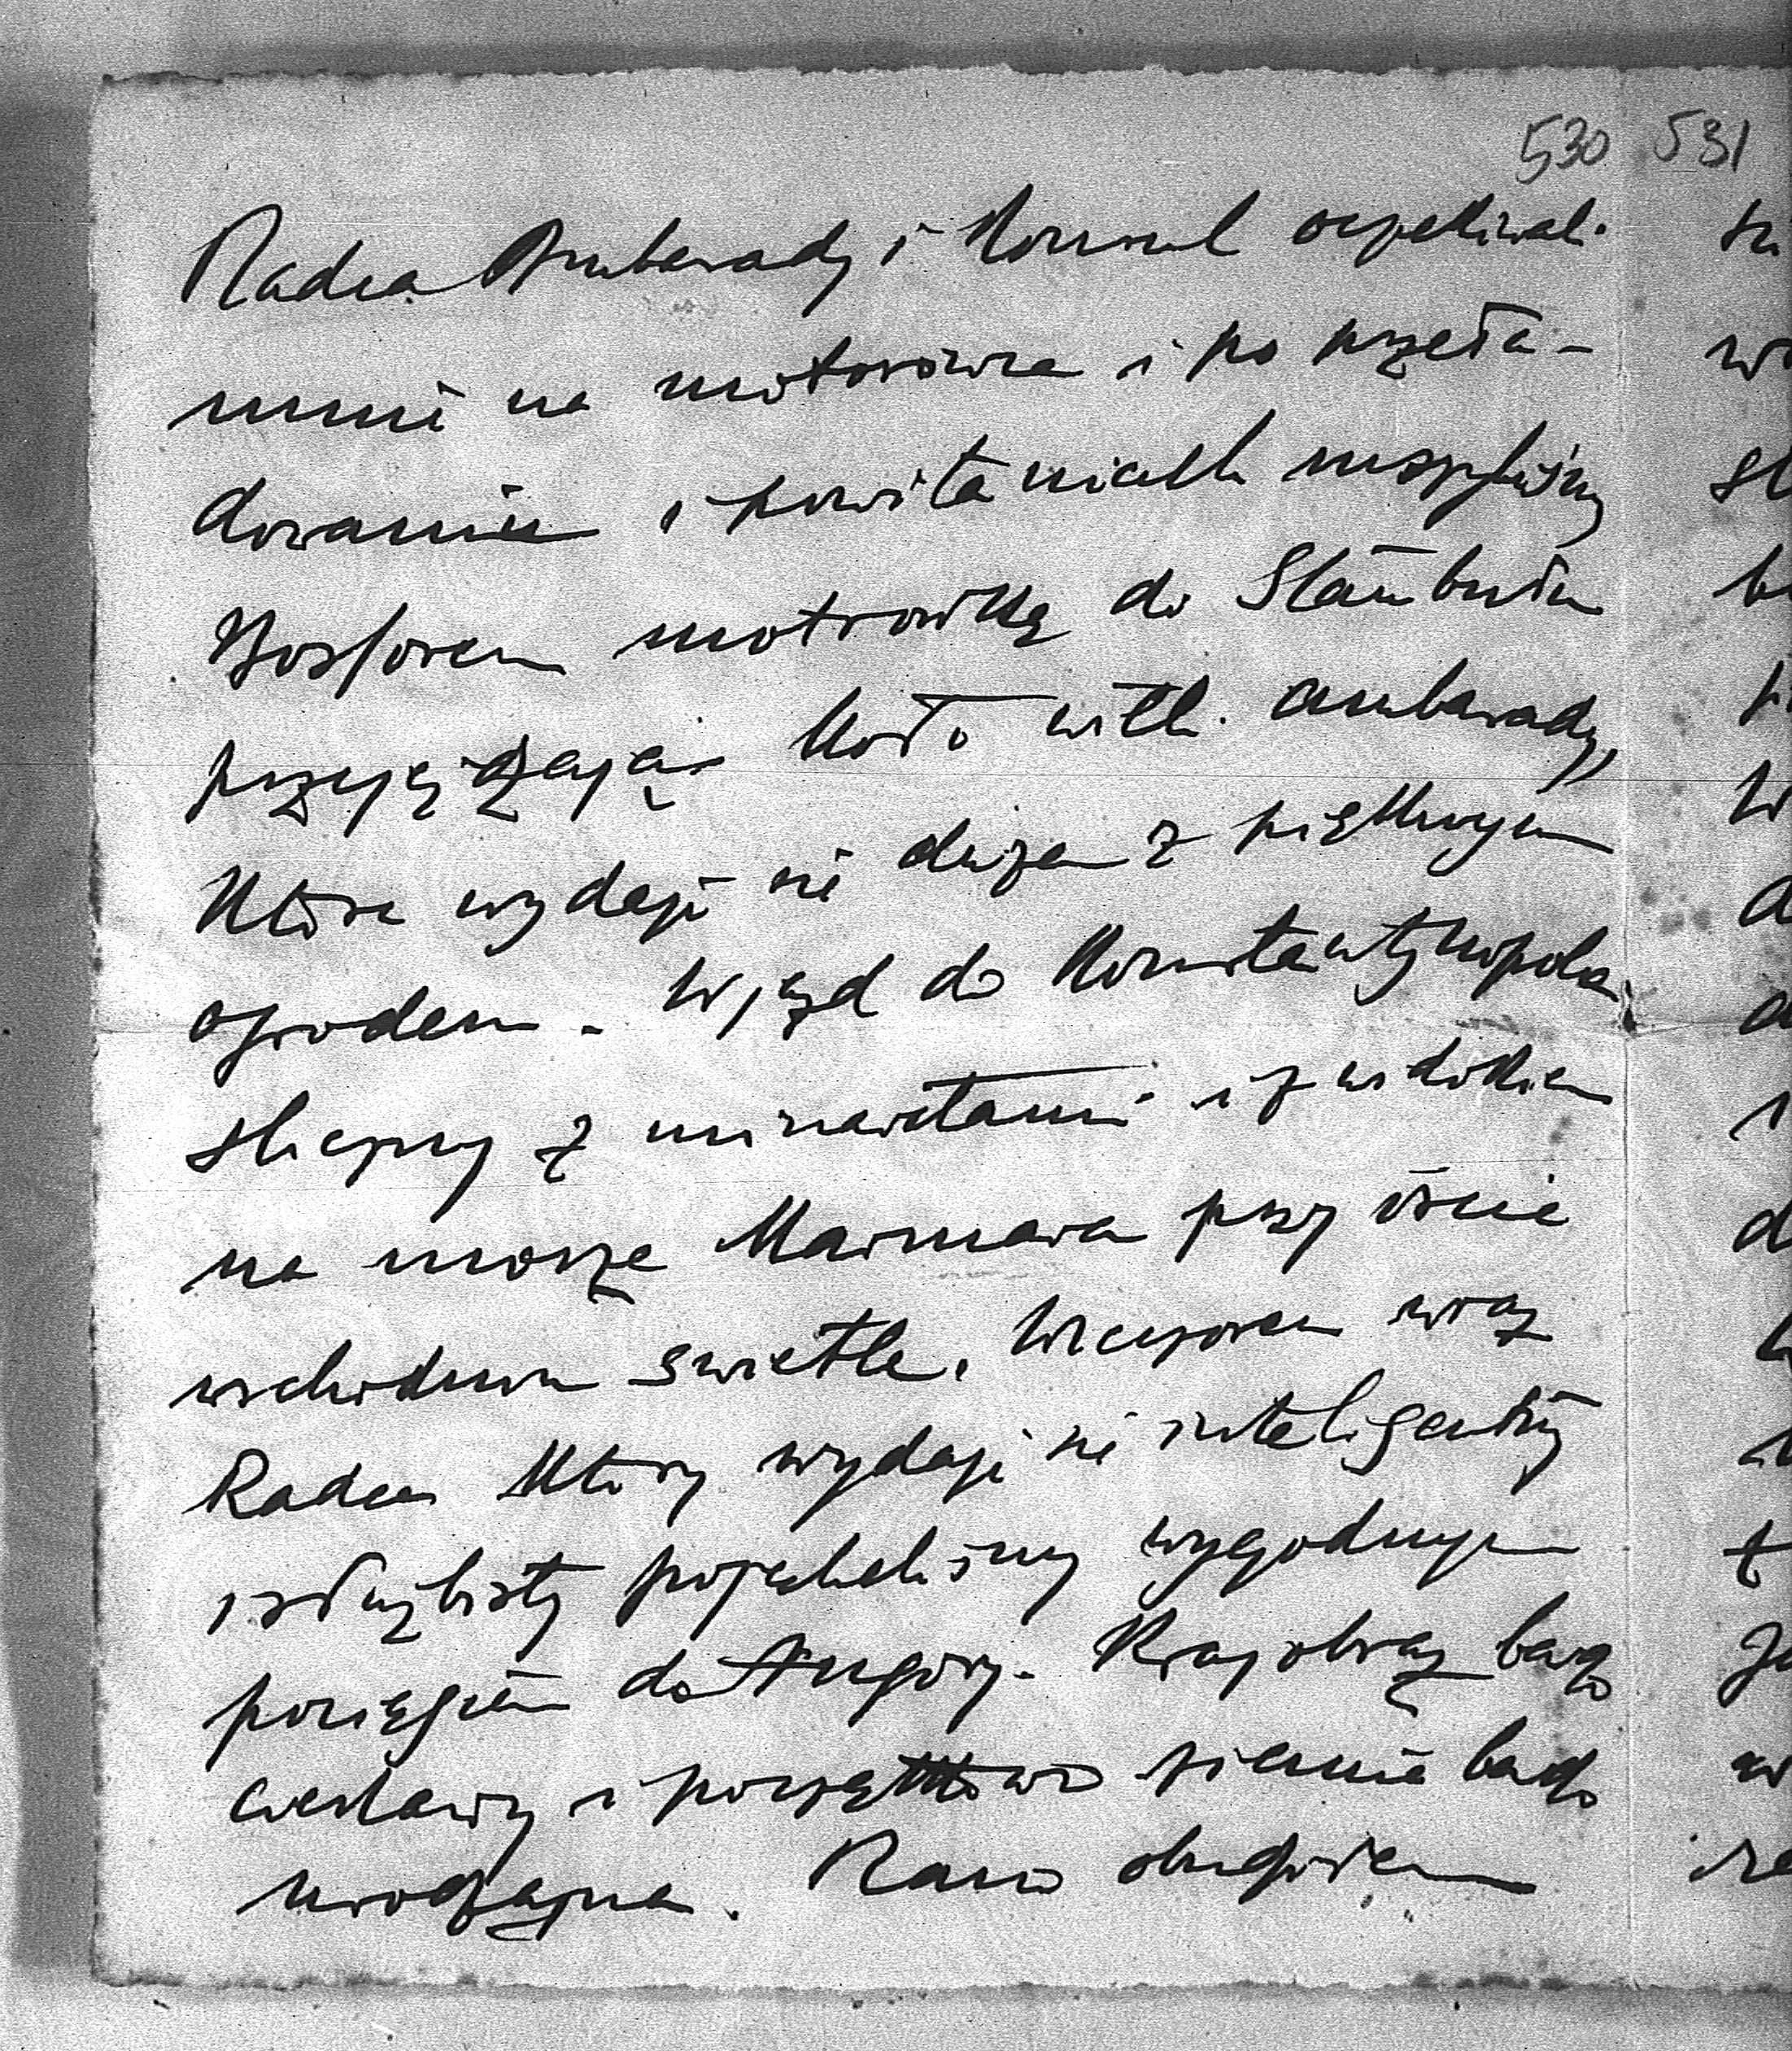 530 531
Radca Ambasady i Konsul oczekiwali
mnie na motorówce i po przeła-
dowaniu i powitaniach ruszyliśmy
Bosforem motorówką do Stambułu
przejeżdżając koło willi ambasady,
która wydaje się duża z pięknym
ogrodem. Wjazd do Konstantynopola
śliczny z minaretami i z widokiem
na morze Marmara przy iście
wschodnim świetle. Wieczorem wraz
Radcą który wydaje się inteligentny
i służbisty pojechaliśmy wygodnym
pociągiem do Angory. Krajobraz bardzo
ciekawy i początkowo ziemia bardzo
urodzajna. Rano